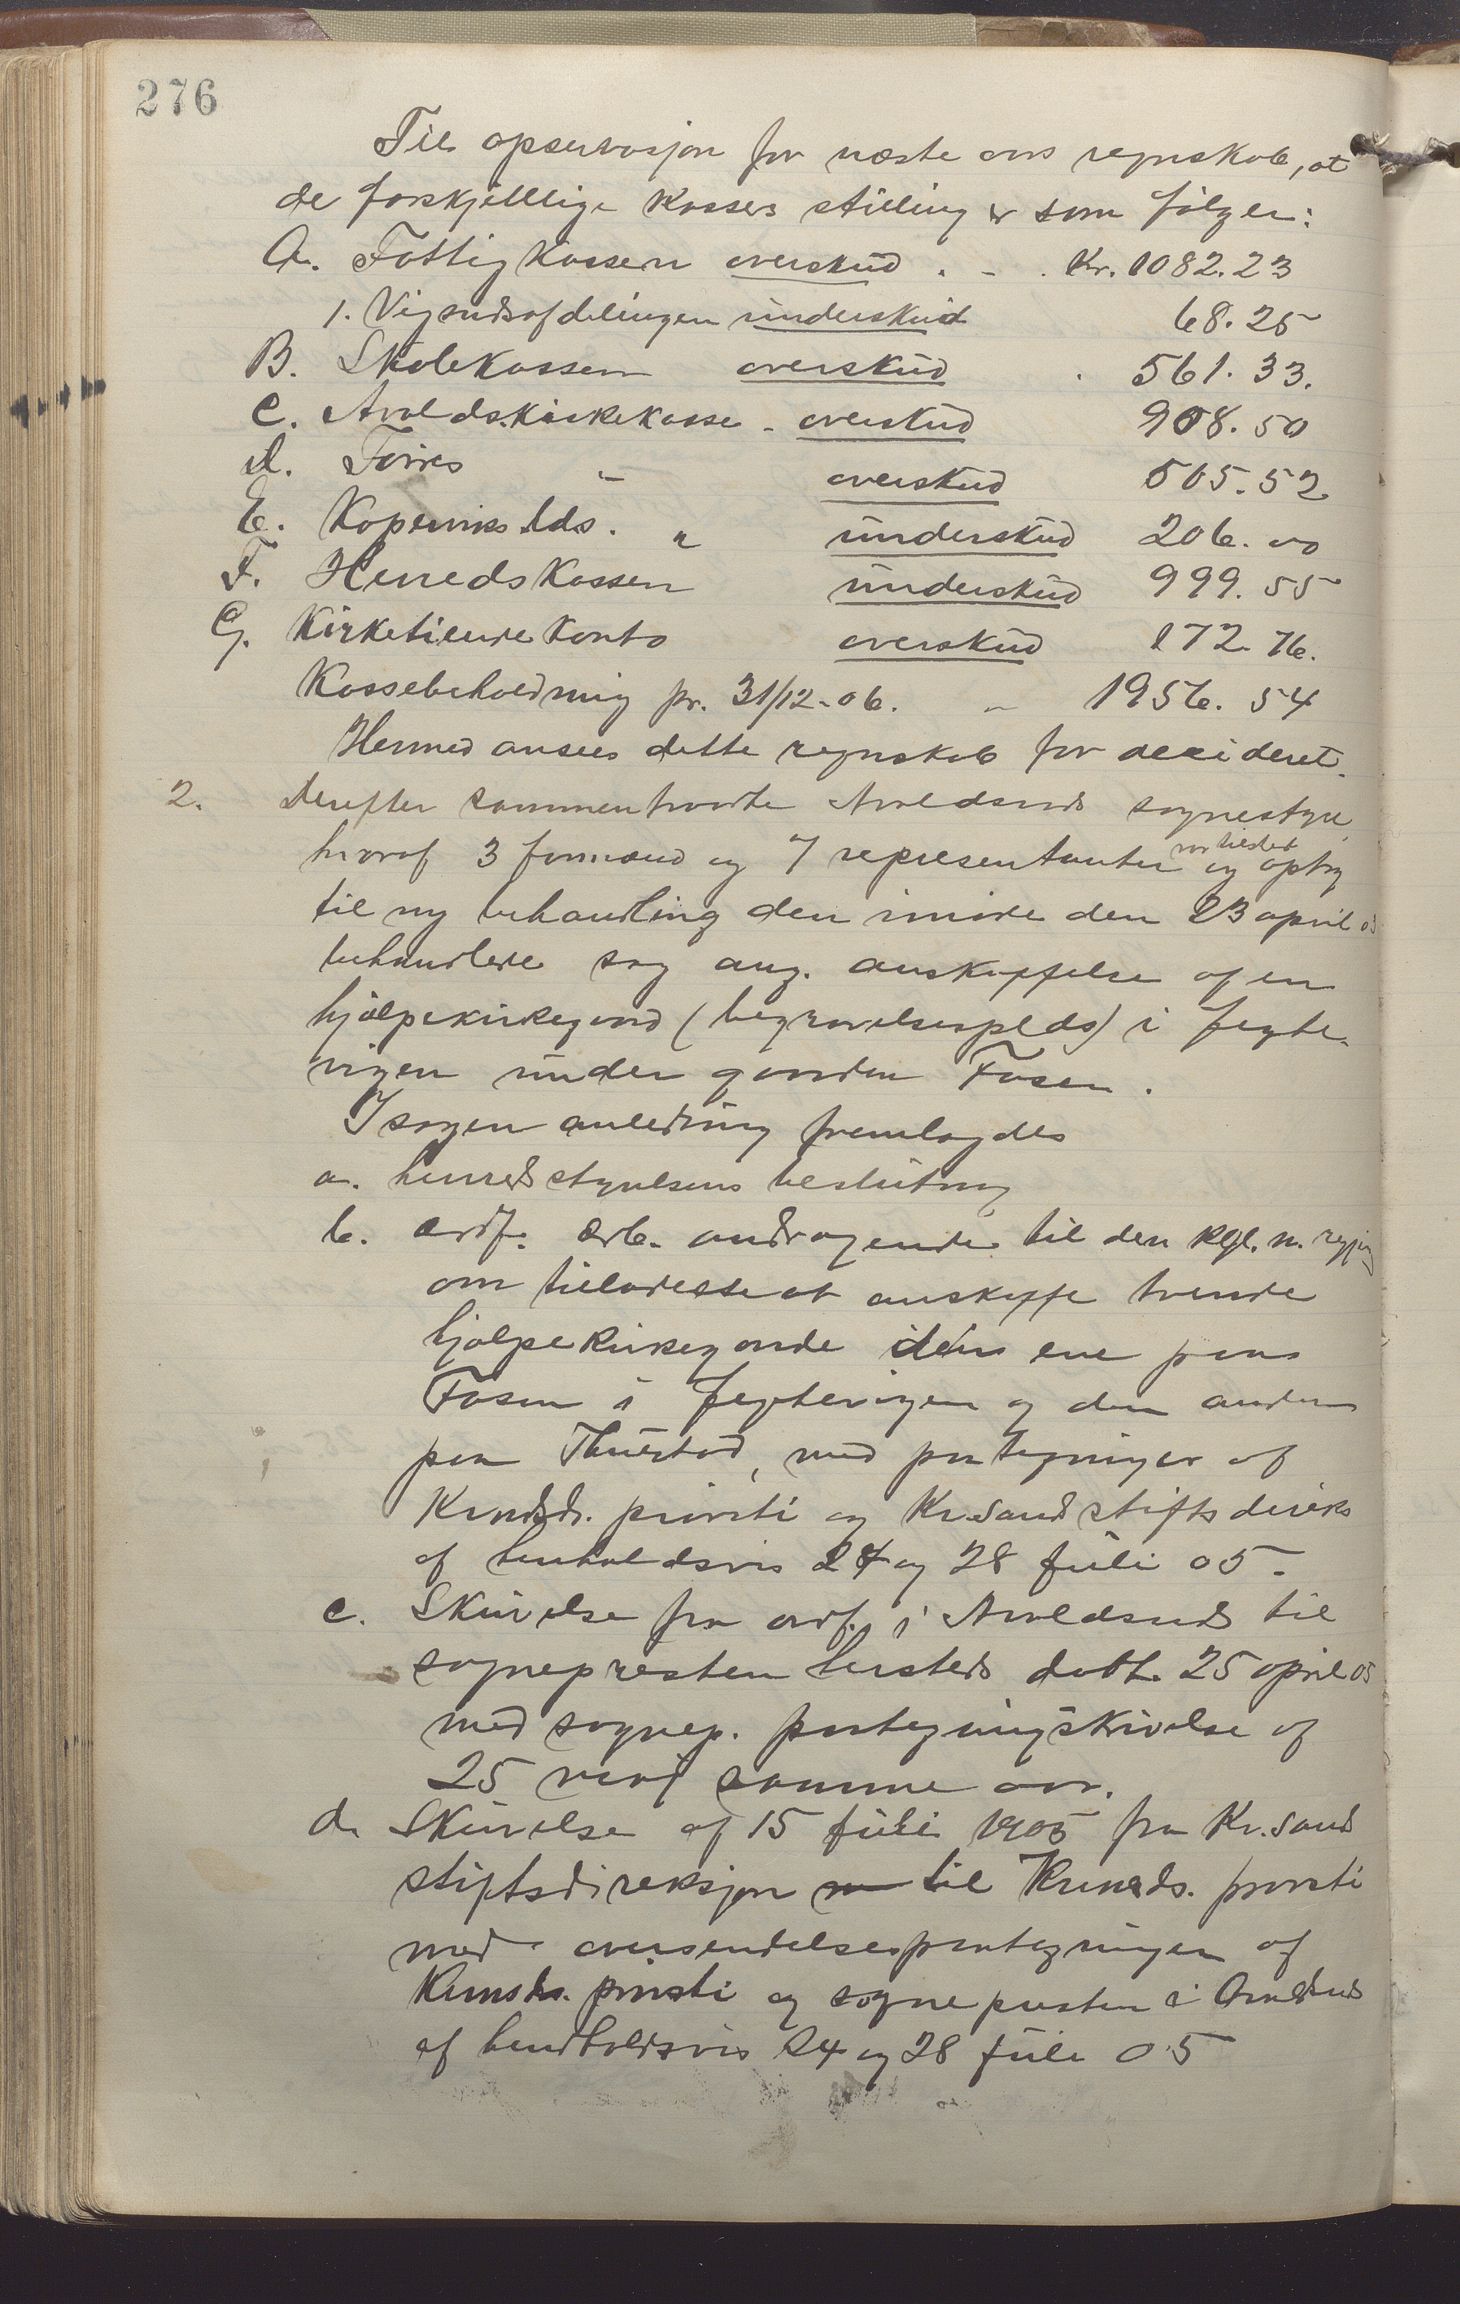 276
Til opservasjon for næste aars regnskab, at
de forskjellige Kassers stilling er som følger:
A. Fattigkassen overskud . - . Kr. 1082.23
1. Vigsndsafdelingen underskud 68.25
B. Skolekassen overskud . 561.33.
C. Avaldsn. kirkekasse - overskud 908.50
D. Torves " overskud 505.52
E. Koperviks lds. " underskud 206.00
F. Herredskassen underskud 999.55
G. Kirketiendekonto overskud 172.76.
Kassebeholdning pr. 31/12-06. - 1956.54
Hermed ansees dette regnskab for decideret.
2. Derefter sammentraadte Avaldsnds sognestyre,
hvoraf 3 formænd og 7 representanter var tilsted og optog
til ny behandling den under den 23 april 05
behandlede sag ang. anskaffelse af en
hjælpekirkegaard (begravelsesplds) i Fegte-
vigen under gaarden Fosen.
I sagen anledning fremlagdes
a. herredsstyrelsens beslutning
b. ordf. erb. andragende til den kgl. n. regjering
om tilladelse at anskaffe tvende
hjælpekirkegaarde den ene paa
Fosen i Fegtevigen og den anden
paa Thuestad, med paategninger af
Karmsds. provsti og Kr.sand stifts direks
af henholdsvis 24 og 28 juli 05.
c. Skrivelse fra ordf. i Avaldsnds til
sognepresten hersteds datt. 25 april 05
med sognep. paategningsskrivelse af
25 næst samme aar.
d. Skrivelse af 15 juli 1905 fra Kr.sand
stiftsdireksjon til Karmsds. provsti
med oversendelsespaategninger af
Karmsds. provsti og sognepresten i Avaldsnds
af henholdsvis 24 og 28 juli 05